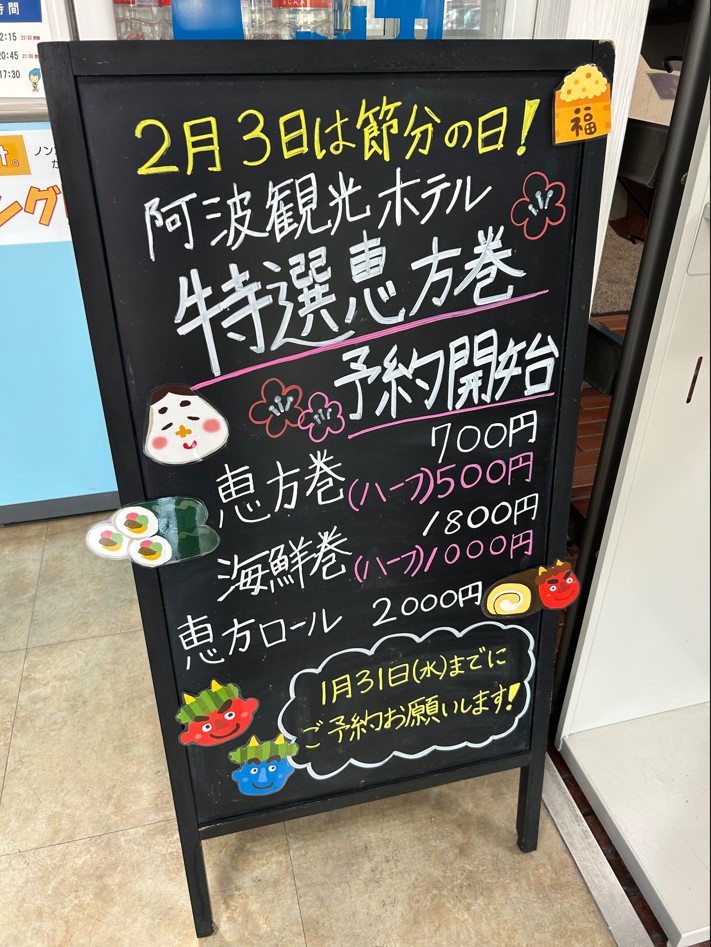 時間
2:15
20:45
17:30
2月3日は節分の日!
福
阿波観光ホテル
特選恵方巻
予約開始
700円
恵方巻(ハーフ)500円
1800円
海鮮巻(ハーフ)1000円
恵方ロール 2000円
1月31日(水)までに
ご予約お願いします!